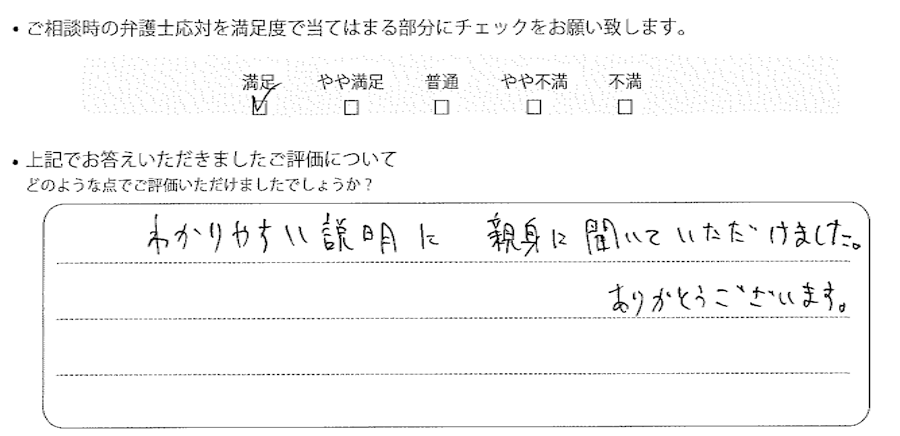 ・ご相談時の弁護士応対を満足度で当てはまる部分にチェックをお願い致します。
満足 やや満足 普通 やや不満 不満
・上記でお答えいただきましたご評価について
どのような点でご評価いただけましたでしょうか？
わかりやすい説明に 親身に聞いていただけました。
ありがとうございます。